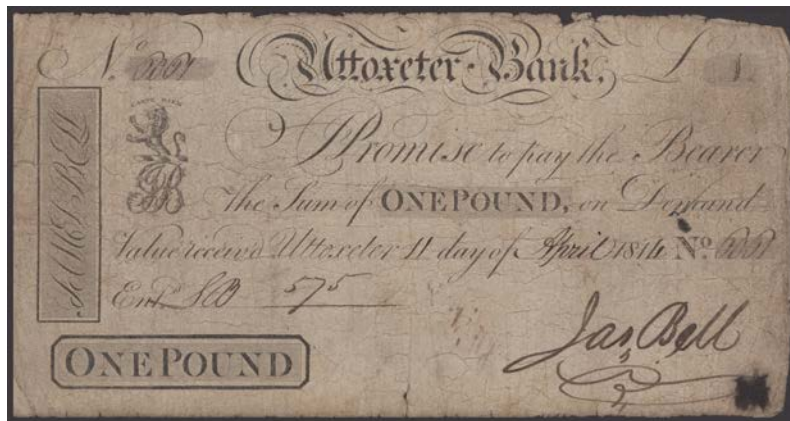 No. Uttoxeter Bank, £ 1
I Promise to pay the Bearer
the Sum of ONE POUND, on Demand
Value receiv'd Uttoxeter 11 day of April 1814 No.
Entd. 575
Jas Bell
ONE POUND